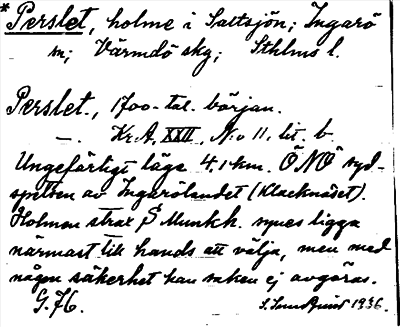 * Perslet, holme i Saltsjön; Ingarö
sn; Värmdö skg; Sthlms l.
Perslet., 1700-tal. början.
—. Kr.A, XXII, N:o 11, lit. b.
Ungefärligt läge 4,1 km. ÖNÖ syd-
spetsen av Ingarölandet (Klacknäset).
Holmen strax S Munkh. synes ligga
närmast till hands att välja, men med
någon säkerhet kan saken ej avgöras.
G. 76. 1936.